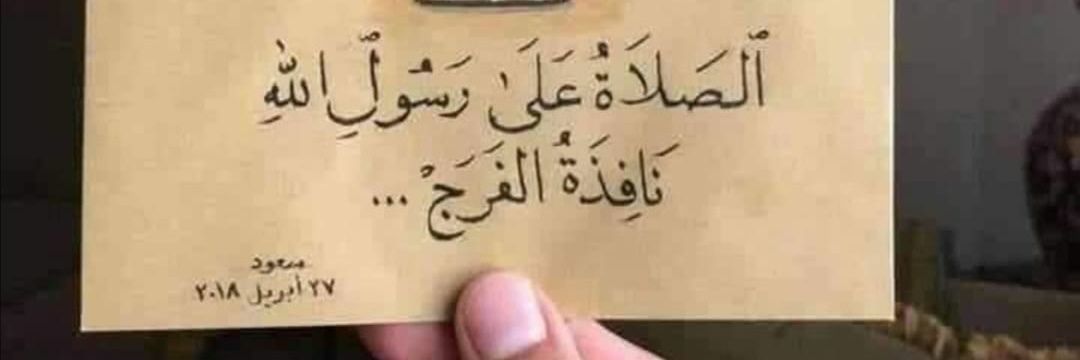 ٱلصَلَاةُ عَلَىٰ رَسُولِ ٱللهِ
نَافِذَةُ الفَرَجْ ...
مسعود
٢٧ أبريل ٢٠١٨